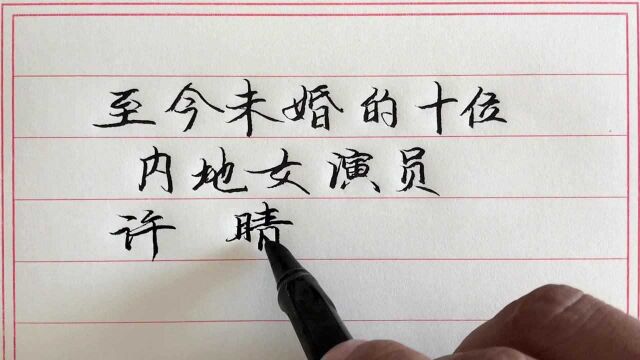 至今未婚的十位
内地女演员
许晴